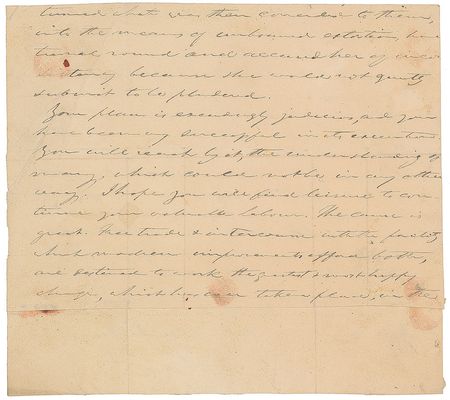 turned what was then conceded to them,
into the means of unbound extortion, have
turned round and accused her of incon
stancy because she would not quietly
submit to be plundered.
Your plan is exceedingly judicious, and you
have been very successful in its execution.
You will reach by it, the understanding of
many, which could not be in any other
way. I hope you will find leisure to con
tinue your valuable labour. The cause is
great. Free trade & intercourse with the facility
which modern improvements afford both,
are destined to work the greatest & most happy
change, which has ever taken place, in the